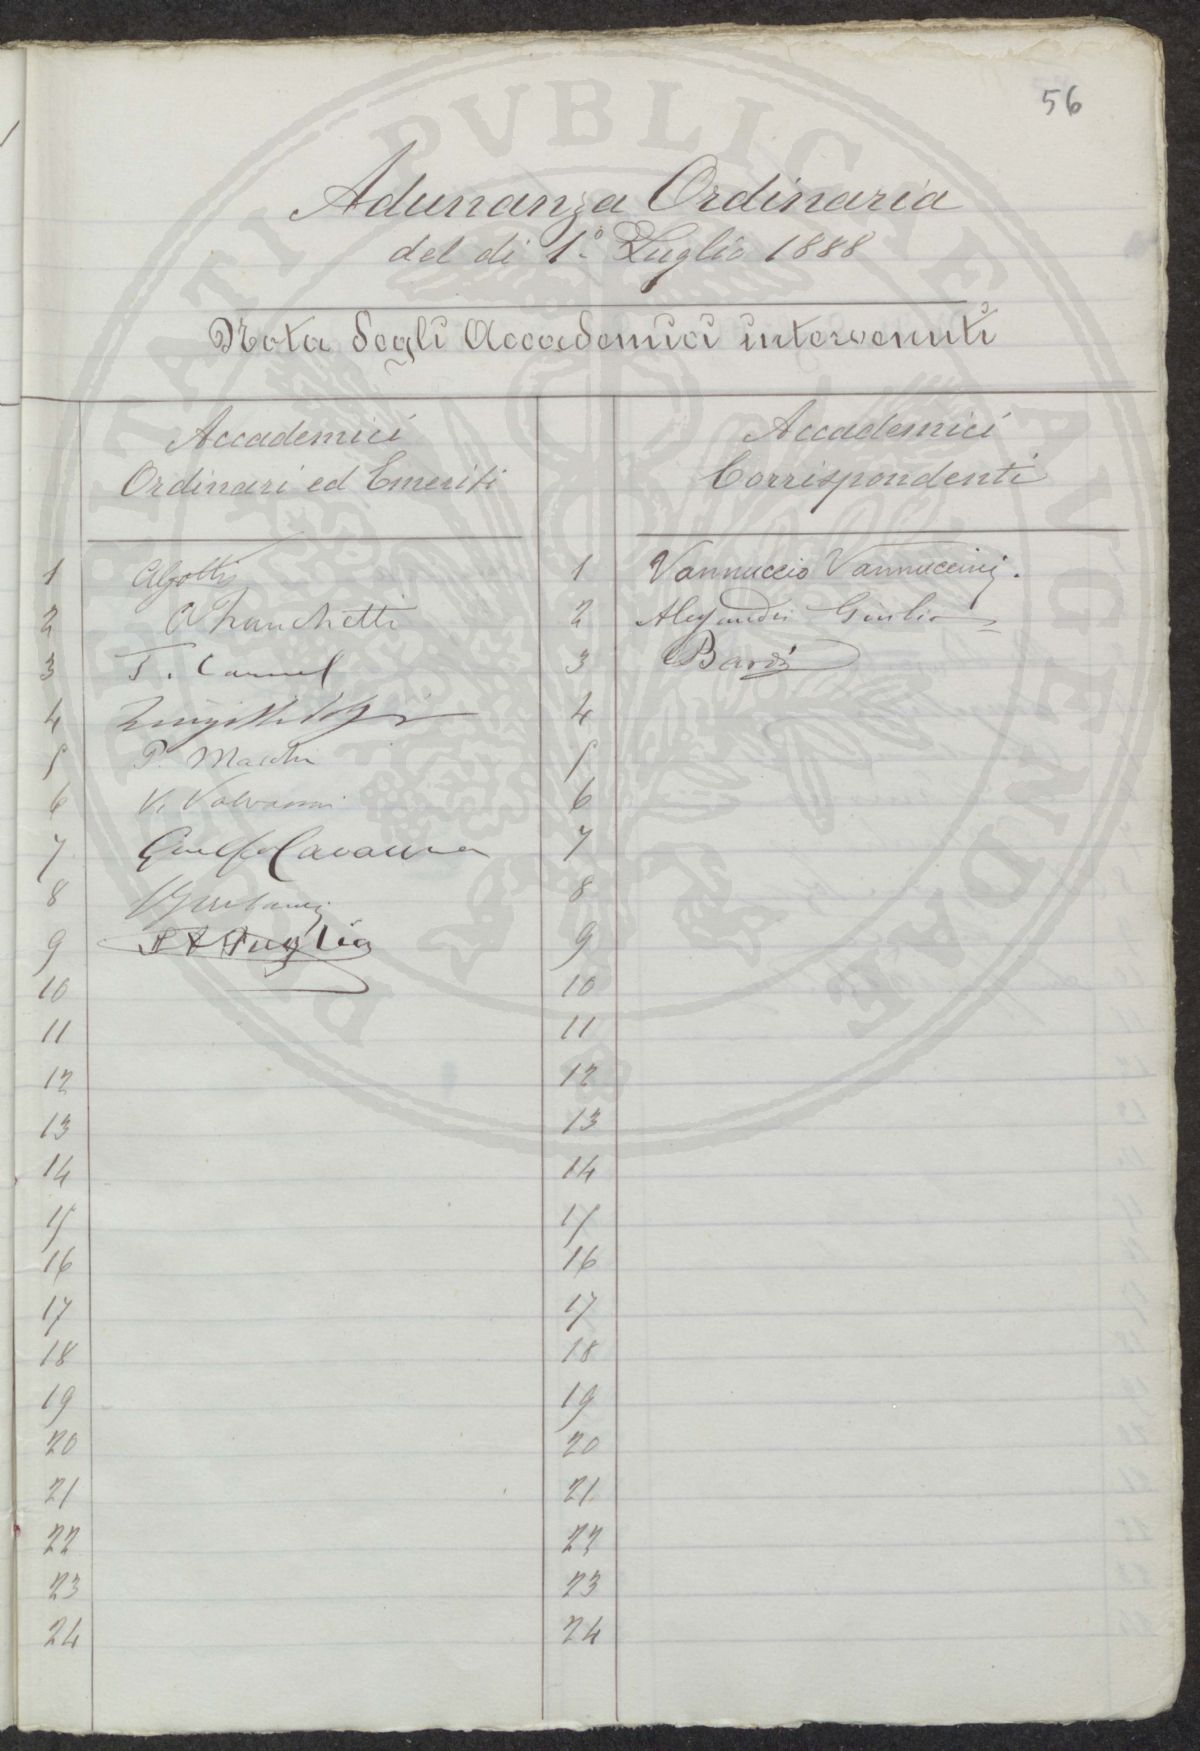 56
Adunanza Ordinaria
del di 1º Luglio 1888
Nota degli Accademici intervenuti
Accademici
Ordinari ed Emeriti
Accademici
Corrispondenti
1
2 A Franchetti
3 T. Caruel
4
5 P. Macchi
6 V. Valvassori
7 Guelfo Cavanna
8
9 A Puglia
10
11
12
13
14
15
16
17
18
19
20
21
22
23
24
1 Vannuccio Vannuccini.
2 Alessandri Giulio
3 Bardi
4
5
6
7
8
9
10
11
12
13
14
17
16
17
18
19
20
21
22
23
24
PROSPERITATI PVBLICAE AVGENDAE